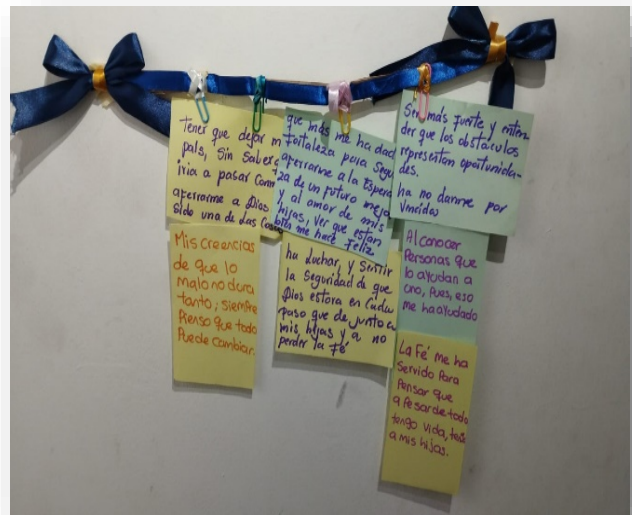 Tener que dejar m
país, Sin Saber q
iria a pasar Conm
aferrarme a Dios
Sido una de las Cosas
que más me ha dad
Fortaleza para Segu
aferrarme a la Espera
za de un futuro mejo
y al amor de mis
hijas, Ver que estan
bien me hace Feliz
Ser más fuerte y enten
der que los obstáculos
representan oportunida-
des.
ha no darme por
Vencidos
Mis creencias
de que lo
malo no dura
tanto; siempre
Pienso que todo
Puede cambiar.
ha Luchar, y Sentir
la Seguridad de que
Dios estara en Cada
paso que de junto a
mis, hijas y a no
perder la Fé
Al conocer
Personas que
lo ayudan a
uno, Pues, eso
me ha ayudado
La Fé me ha
Servido Para
Pensar que
a Pesar de todo
tengo vida, ten
a mis hijas.